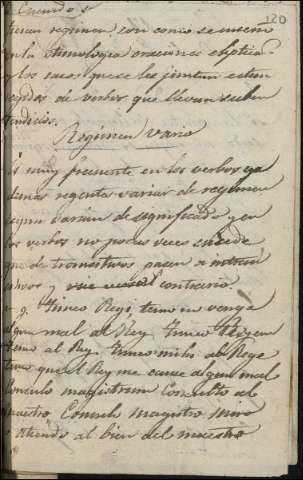 Cuando s
120
tienen regimen, son como se enseño
en la etimologia oracion eliptica
y los casos que se les juntan estan
regidos de verbos que llevan suben
tendidos.
Regimen vario
Es muy frecuente en los verbos y
demas regentes variar de regimen
segun varian de significado y en
los verbos no pocas veces sucede
que de transitivos pasen a intran
sitivos y contrario.
v. g. Timeo Regi, temo no venga
algun mal al Rey, timeo Regem
temo al Rey, timeo mihi ab Rege
temo que el Rey me cause algun mal
Consulo magistrum Consulto al
maestro Consulo magistro, miro
atiendo al bien del maestro